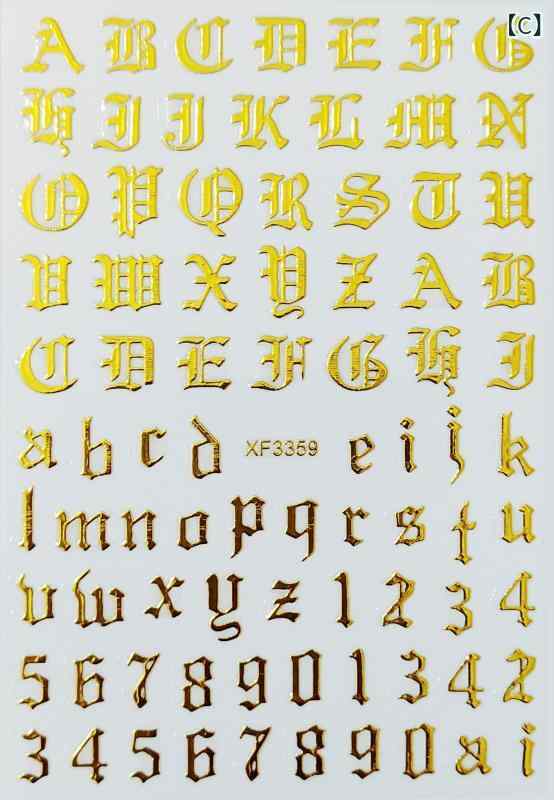 【C】
A B C D E F G
H I J K L M N
O P Q R S T U
V W X Y Z A B
C D E F G H I
a b c d XF3359 e i j k
l m n o p q r s t u
v w x y z 1 2 3 4
5 6 7 8 9 0 1 3 4 2
3 4 5 6 7 8 9 0 a i